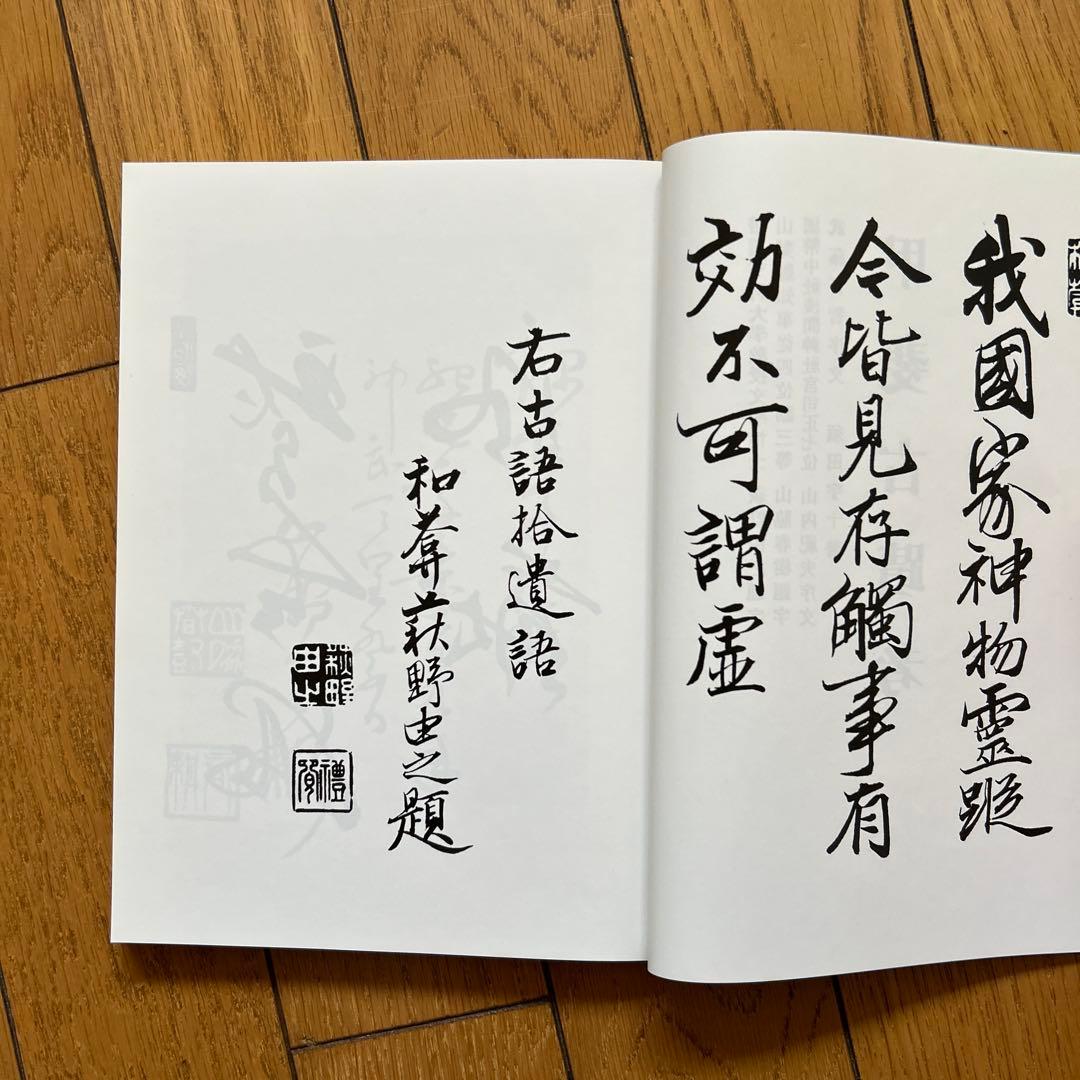 我國家神物靈蹤
今皆見存觸事有
効不可謂虛
右古語拾遺語
和葊萩野由之題
萩野由之